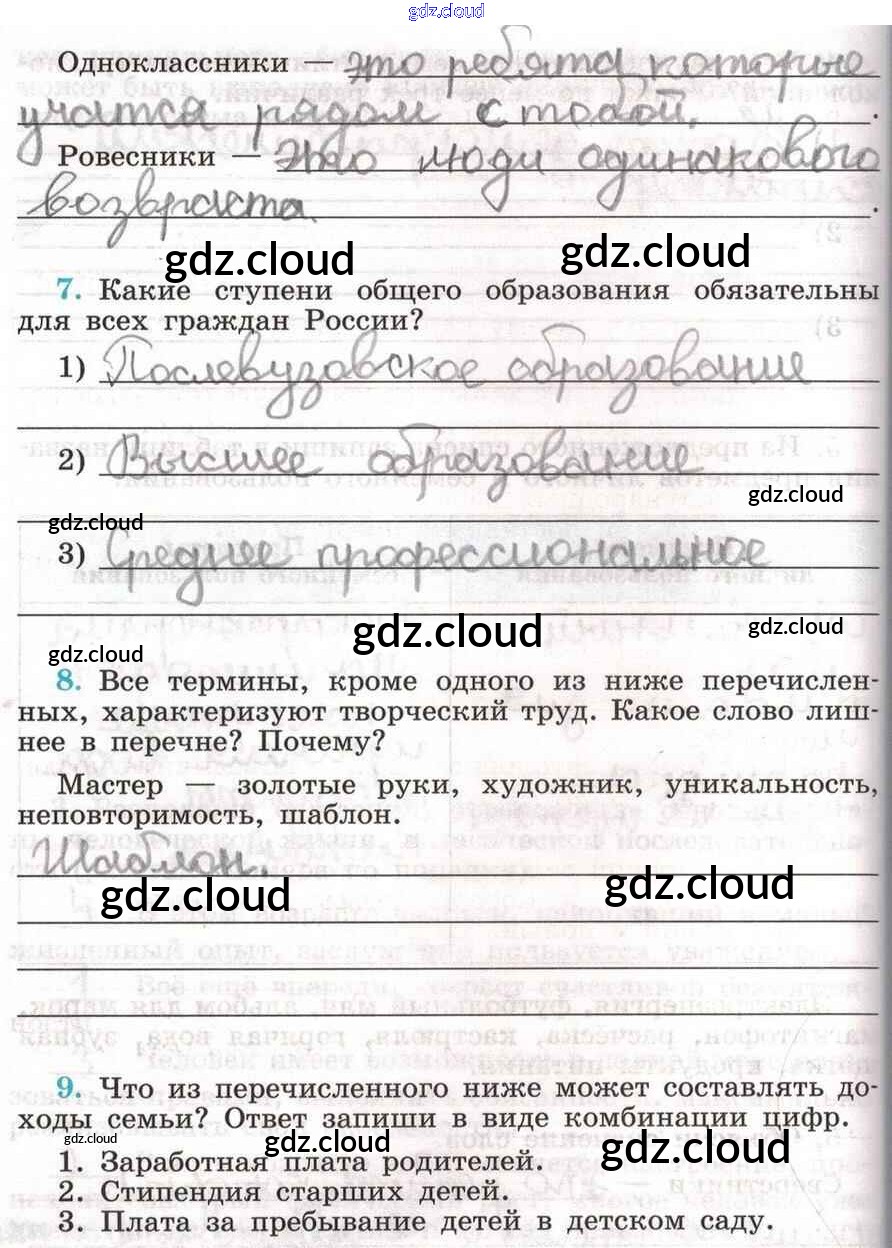 gdz.cloud
Одноклассники — это ребята, которые
учатся рядом с тобой.
Ровесники — Это люди одинакового
возвраста.
gdz.cloud gdz.cloud
7. Какие ступени общего образования обязательны
для всех граждан России?
1) Послевузавское образование
2) Высшее образование
gdz.cloud
gdz.cloud
3) Среднее профессиональное
gdz.cloud gdz.cloud
gdz.cloud
8. Все термины, кроме одного из ниже перечислен-
ных, характеризуют творческий труд. Какое слово лиш-
нее в перечне? Почему?
Мастер — золотые руки, художник, уникальность,
неповторимость, шаблон.
Шаблон.
gdz.cloud gdz.cloud
9. Что из перечисленного ниже может составлять до-
ходы семьи? Ответ запиши в виде комбинации цифр.
gdz.cloud gdz.cloud gdz.cloud
1. Заработная плата родителей.
2. Стипендия старших детей.
3. Плата за пребывание детей в детском саду.